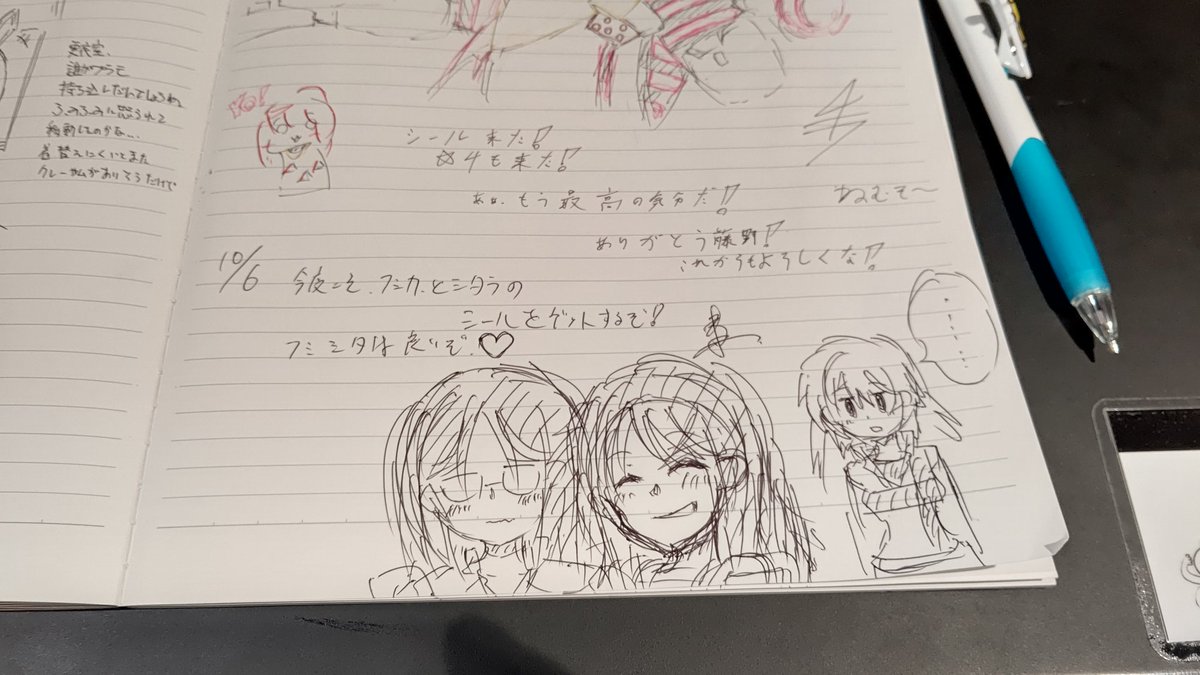 更衣室、
誰が
持ち込んだんでしょうね
ふみふみに怒られて
移動したのかな…
着替えにくいとまた
クレームがありそうだけど
シール来た!
も来た!
ああ、もう最高の気分だ!!
ありがとう藤野!
これからもよろしくな!!
ねむそ〜
10/6 今度こそ、フミカとシタラの
シールをゲットするぞ!
フミシタは良いぞ、♡
……